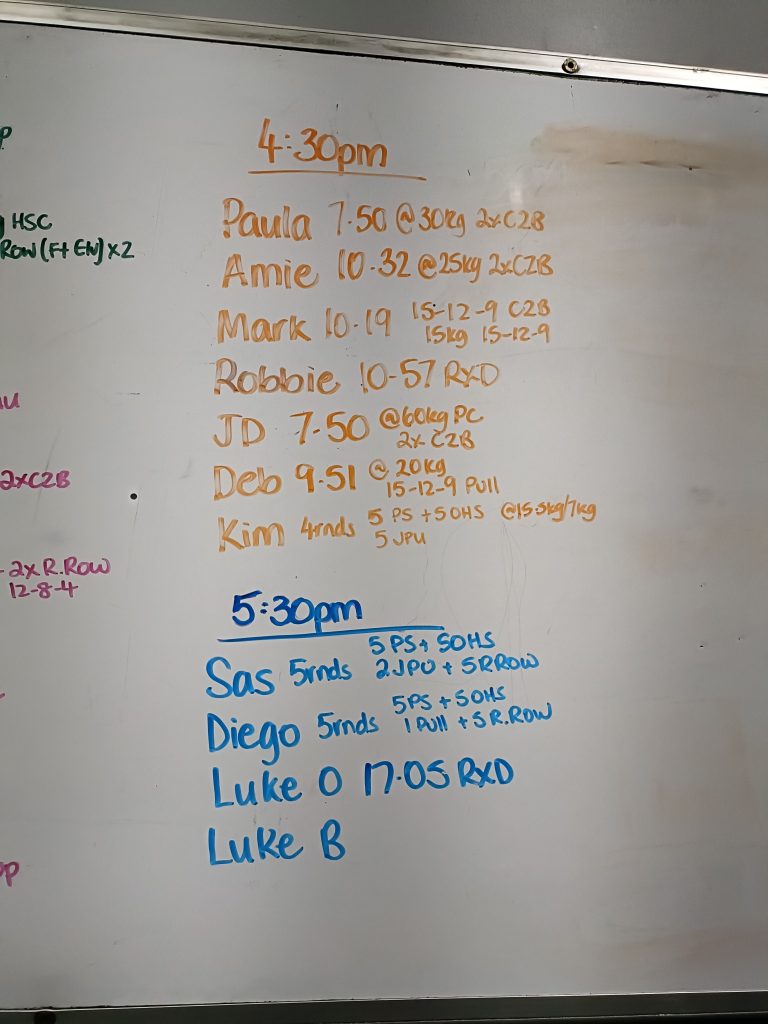 HSC
ROW (F+EN) x2
2xC2B
- 2x R.ROW
12-8-4
4:30pm
Paula 7.50 @30kg 2xC2B
Amie 10.32 @25kg 2xC2B
Mark 10.19 15-12-9 C2B
15kg 15-12-9
Robbie 10-57 RXD
JD 7.50 @60kg PC
2x C2B
Deb 9.51 @ 20kg
15-12-9 Pull
Kim 4rnds 5 PS + 5 OHS @15.5kg/7kg
5 JPU
5:30pm
Sas 5rnds 5 PS + 5 OHS
2 JPU + 5 R ROW
Diego 5rnds 5 PS + 5 OHS
1 Pull + 5 R.ROW
Luke O 17.05 RXD
Luke B